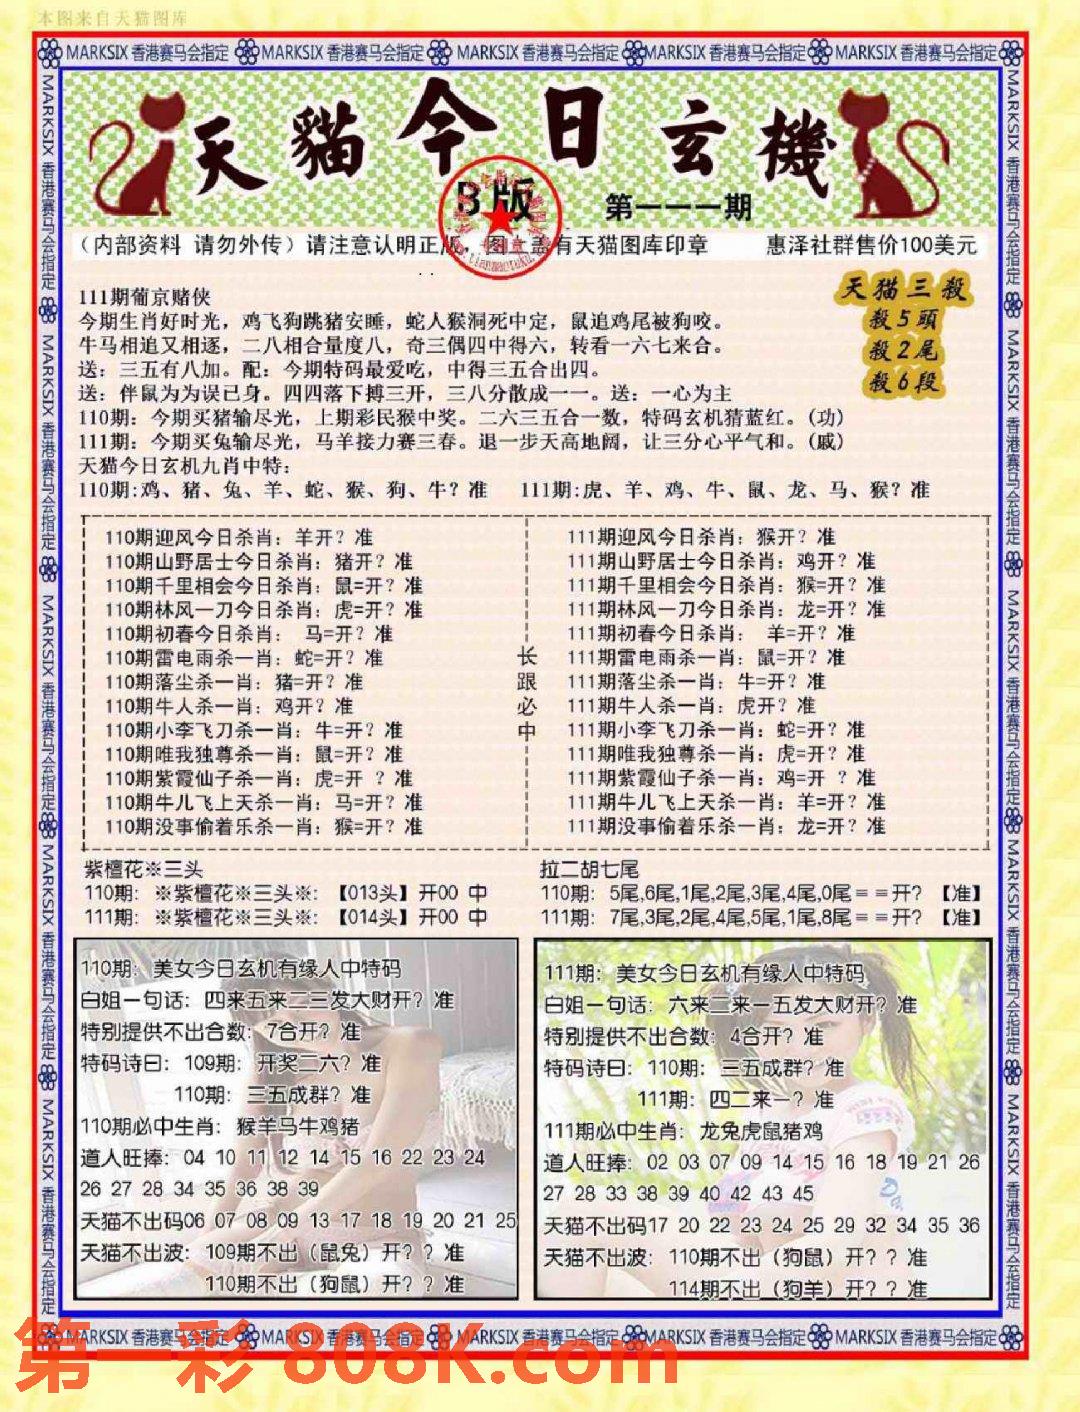 本图来自天猫图库
MARKSIX 香港赛马会指定 MARKSIX 香港赛马会指定 MARKSIX 香港赛马会指定 MARKSIX 香港赛马会指定 MARKSIX 香港赛马会指定
天貓今日玄機
B版
第一一一期
(内部资料 请勿外传) 请注意认明正版，图上盖有天猫图库印章 惠泽社群售价100美元
天猫三殺
殺5頭
殺2尾
殺6段
111期葡京赌侠
今期生肖好时光，鸡飞狗跳猪安睡，蛇人猴洞死中定，鼠追鸡尾被狗咬。
牛马相追又相逐，二八相合量度八，奇三偶四中得六，转看一六七来合。
送：三五有八加。配：今期特码最爱吃，中得三五合出四。
送：伴鼠为为误已身。四四落下搏三开，三八分散成一一。送：一心为主
110期：今期买猪输尽光，上期彩民猴中奖。二六三五合一数，特码玄机猜蓝红。(功)
111期：今期买兔输尽光，马羊接力赛三春。退一步天高地阔，让三分心平气和。(戚)
天猫今日玄机九肖中特：
110期:鸡、猪、兔、羊、蛇、猴、狗、牛？准 111期:虎、羊、鸡、牛、鼠、龙、马、猴？准
110期迎风今日杀肖：羊开？准
110期山野居士今日杀肖：猪开？准
110期千里相会今日杀肖：鼠=开？准
110期林风一刀今日杀肖：虎=开？准
110期初春今日杀肖： 马=开？准
110期雷电雨杀一肖：蛇=开？准
110期落尘杀一肖：猪=开？准
110期牛人杀一肖：鸡开？准
110期小李飞刀杀一肖：牛=开？准
110期唯我独尊杀一肖：鼠=开？准
110期紫霞仙子杀一肖：虎=开 ？准
110期牛儿飞上天杀一肖：马=开？准
110期没事偷着乐杀一肖：猴=开？准
长
跟
必
中
111期迎风今日杀肖：猴开？准
111期山野居士今日杀肖：鸡开？准
111期千里相会今日杀肖：猴=开？准
111期林风一刀今日杀肖：龙=开？准
111期初春今日杀肖： 羊=开？准
111期雷电雨杀一肖：鼠=开？准
111期落尘杀一肖：牛=开？准
111期牛人杀一肖：虎开？准
111期小李飞刀杀一肖：蛇=开？准
111期唯我独尊杀一肖：虎=开？准
111期紫霞仙子杀一肖：鸡=开 ？准
111期牛儿飞上天杀一肖：羊=开？准
111期没事偷着乐杀一肖：龙=开？准
紫檀花※三头
110期：※紫檀花※三头※:【013头】开00 中
111期：※紫檀花※三头※:【014头】开00 中
拉二胡七尾
110期：5尾,6尾,1尾,2尾,3尾,4尾,0尾==开？【准】
111期：7尾,3尾,2尾,4尾,5尾,1尾,8尾==开？【准】
110期：美女今日玄机有缘人中特码
白姐一句话：四来五来二三发大财开？准
特别提供不出合数：7合开？准
特码诗曰：109期：开奖二六？准
110期：三五成群？准
110期必中生肖：猴羊马牛鸡猪
道人旺捧：04 10 11 12 14 15 16 22 23 24
26 27 28 34 35 36 38 39
天猫不出码06 07 08 09 13 17 18 19 20 21 25
天猫不出波：109期不出（鼠兔）开？？准
110期不出（狗鼠）开？？准
111期：美女今日玄机有缘人中特码
白姐一句话：六来二来一五发大财开？准
特别提供不出合数：4合开？准
特码诗曰：110期：三五成群？准
111期：四二来一？准
111期必中生肖：龙兔虎鼠猪鸡
道人旺捧：02 03 07 09 14 15 16 18 19 21 26
27 28 33 38 39 40 42 43 45
天猫不出码17 20 22 23 24 25 29 32 34 35 36
天猫不出波：110期不出（狗鼠）开？？准
114期不出（狗羊）开？？准
MARKSIX 香港赛马会指定 MARKSIX 香港赛马会指定 MARKSIX 香港赛马会指定 MARKSIX 香港赛马会指定 MARKSIX 香港赛马会指定
第一彩 808K.com